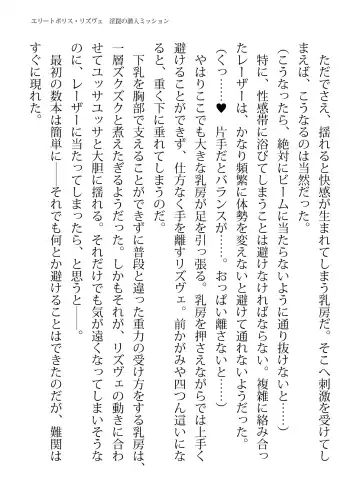 エリートポリス・リズヴェ　淫獄の潜入ミッション
ただでさえ、揺れると快感が生まれてしまう乳房だ。そこへ刺激を受けてし
まえば、こうなるのは当然だった。
（こうなったら、絶対にビームに当たらないように通り抜けないと……）
特に、性感帯に浴びてしまうことは避けなければならない。複雑に絡み合っ
たレーザーは、かなり頻繁に体勢を変えないと避けて通れないようだった。
（くっ……♥　片手だとバランスが……。おっぱい離さないと……）
やはりここでも大きな乳房が足を引っ張る。乳房を押さえながらでは上手く
避けることができず、仕方なく手を離すリズヴェ。前かがみや四つん這いにな
ると、重く下に垂れてしまうのだ。
下乳を胸部で支えることができずに普段と違った重力の受け方をする乳房は、
一層ズクズクと煮えたぎるようだった。しかもそれが、リズヴェの動きに合わ
せてユッサユッサと大胆に揺れる。それだけでも気が遠くなってしまいそうな
のに、レーザーに当たってしまったら、と思うと――。
最初の数本は簡単に――それでも何とか避けることはできたのだが、難関は
すぐに現れた。